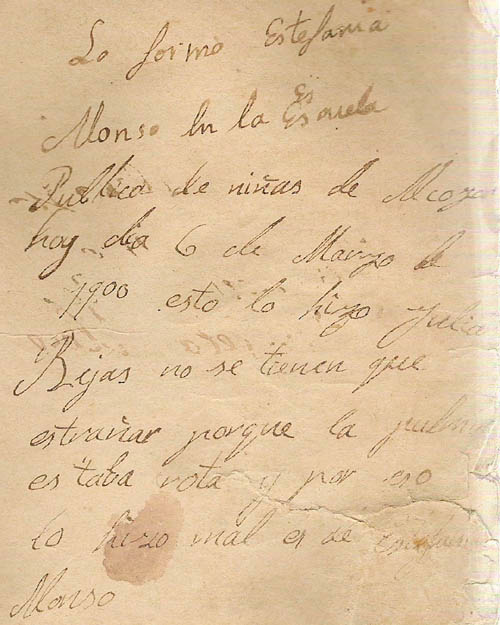 Lo formo Estefania
Alonso En la Escuela
Publica de niñas de Alcozar
hoy dia 6 de Marzo de
1900 esto lo hizo Julia
Rejas no se tienen que
estrañar porque la
estaba rota y por eso
lo hizo mal es de
Alonso